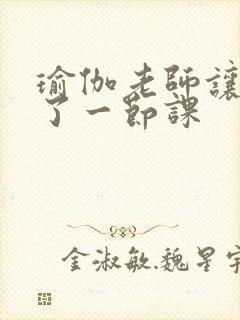 瑜伽老師讓
了一節課
金淑敏.魏星宇